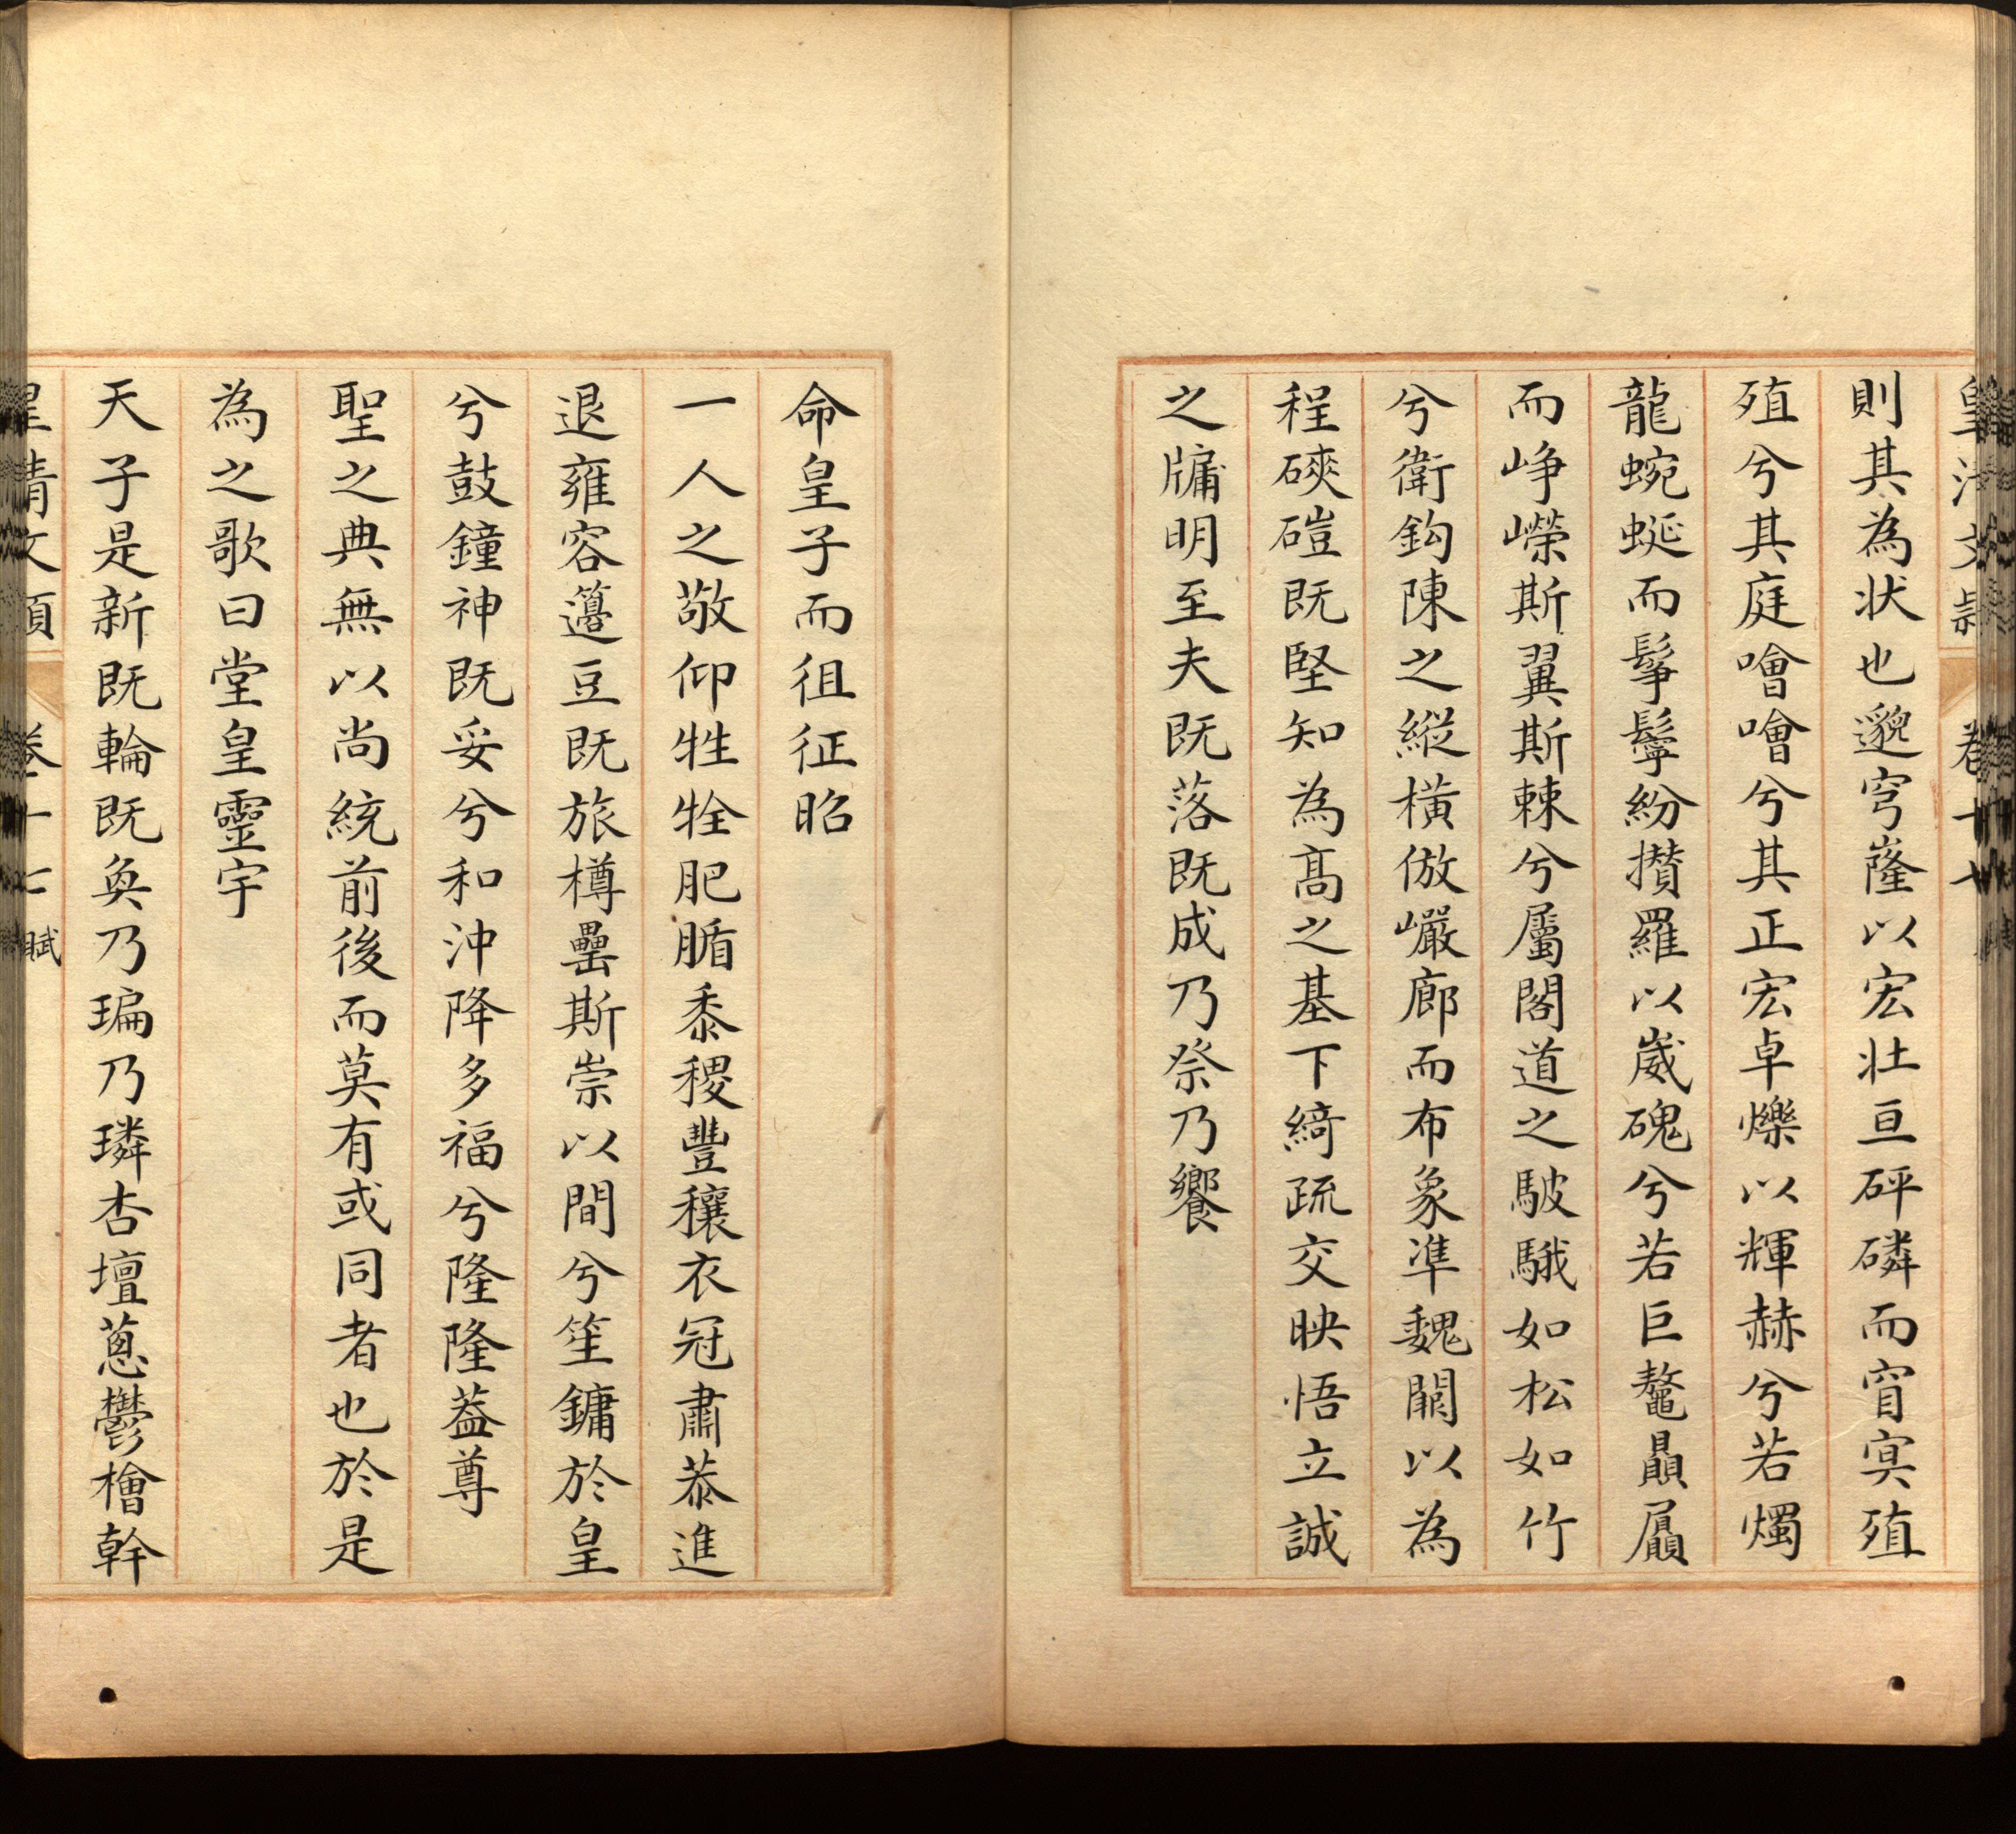 皇清文穎 卷十七
則其為状也邈穹嶐以宏壮亘砰磷而窅寞殖
殖兮其庭噲噲兮其正宏卓爍以輝赫兮若燭
龍蜿蜒而髼鬡紛攅羅以崴磈兮若巨鼇贔屭
而崢嶸斯翼斯棘兮屬閣道之駊騀如松如竹
兮衛鈎陳之縱橫倣巖廊而布象準魏闕以為
程磢磑既堅知為髙之基下綺疏交映悟立誠
之牖明至夫既落既成乃祭乃饗
命皇子而徂征昭
一人之敬仰牲牷肥腯黍稷豐穰衣冠肅恭進
退雍容籩豆既旅樽罍斯崇以間兮笙鏞於皇
兮鼓鐘神既妥兮和沖降多福兮隆隆葢尊
聖之典無以尚統前後而莫有或同者也於是
為之歌曰堂皇靈宇
天子是新既輪既奐乃瑞乃璘杏壇蔥鬱檜幹
皇清文穎 卷十七 賦